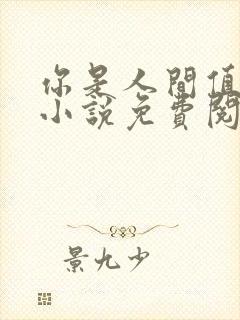 你是人間值
小說免費閱
景九少